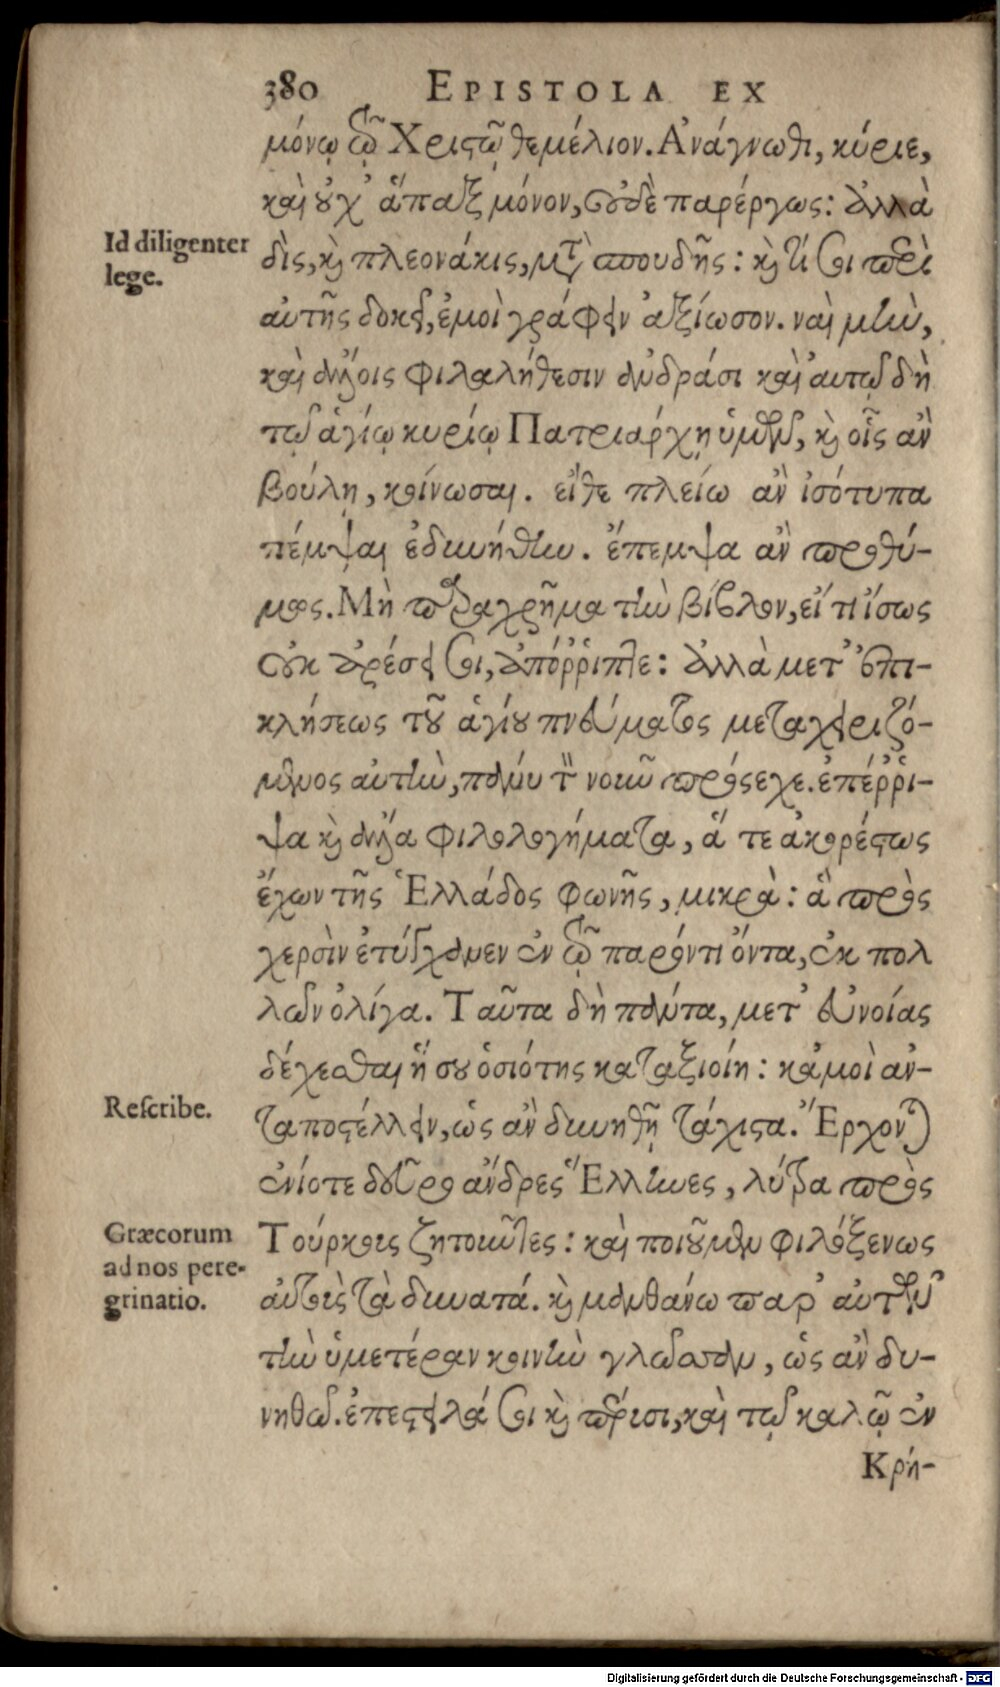 380 EPISTOLA EX
μόνῳ τῷ Χριςῷ θεμέλιον. Ἀνάγνωθι, κύριε,
καὶ οὐχ ἅπαξ μόνον, οὐδὲ παρέργως: ἀλλὰ
Id diligenter
lege.
δὶς, καὶ πλεονάκις, μετὰ σπουδῆς: καὶ τί σοι περὶ
αὐτῆς δοκεῖ, ἐμοὶ γράφειν ἀξίωσον. ναὶ μὴν,
καὶ ἄλλοις φιλαλήθεσιν ἀνδράσι καὶ αὐτῷ δὴ
τῷ ἁγίῳ κυρίῳ Πατριάρχῃ ὑμῶν, καὶ οἷς ἂν
βούλῃ, κοίνωσαι. εἴθε πλείω ἂν ἰσότυπα
πέμψαι ἐδυνήθην. ἔπεμψα ἂν προθύ-
μως. Μὴ παραχρῆμα τὴν βίβλον, εἴ τι ἴσως
οὐκ ἀρέσει σοι, ἀπόῤῥιπτε: ἀλλὰ μετ' ἐπι-
κλήσεως τοῦ ἁγίου πνεύματος μεταχειριζό-
μενος αὐτὴν, πάνυ τὸν νοῦν πρόσεχε. ἐπέῤῥι-
ψα καὶ ἄλλα φιλολογήματα, ἅ τε ἀκορέςως
ἔχων τῆς Ἑλλάδος φωνῆς, μικρὰ: ἃ πρὸς
χερσὶν ἐτύγχανεν ἐν τῷ παρόντι ὄντα, ἐκ πολ
λῶν ὀλίγα. Ταῦτα δὴ πάντα, μετ' εὐνοίας
δέχεσθαι ἡ σου ὁσιότης καταξιοίη: κἀμοὶ ἀν-
Rescribe.
ταποςέλλειν, ὡς ἂν δυνηθῇ τάχιςα. Ἔρχονται
ἐνίοτε δεῦρο ἄνδρες Ἕλληνες, λύτρα πρὸς
Græcorum
ad nos pere-
grinatio.
Τούρκοις ζητοῦντες: καὶ ποιοῦμεν φιλοξένως
αὐτοῖς τὰ δυνατά. καὶ μανθάνω παρ' αὐτῶν
τὴν ὑμετέραν κοινὴν γλῶσσαν, ὡς ἂν δυ-
νηθῶ. ἐπεςειλά σοι καὶ πέρισι, καὶ τῷ καλῷ ἐν
Κρή-
Digitalisierung gefördert durch die Deutsche Forschungsgemeinschaft - DFG